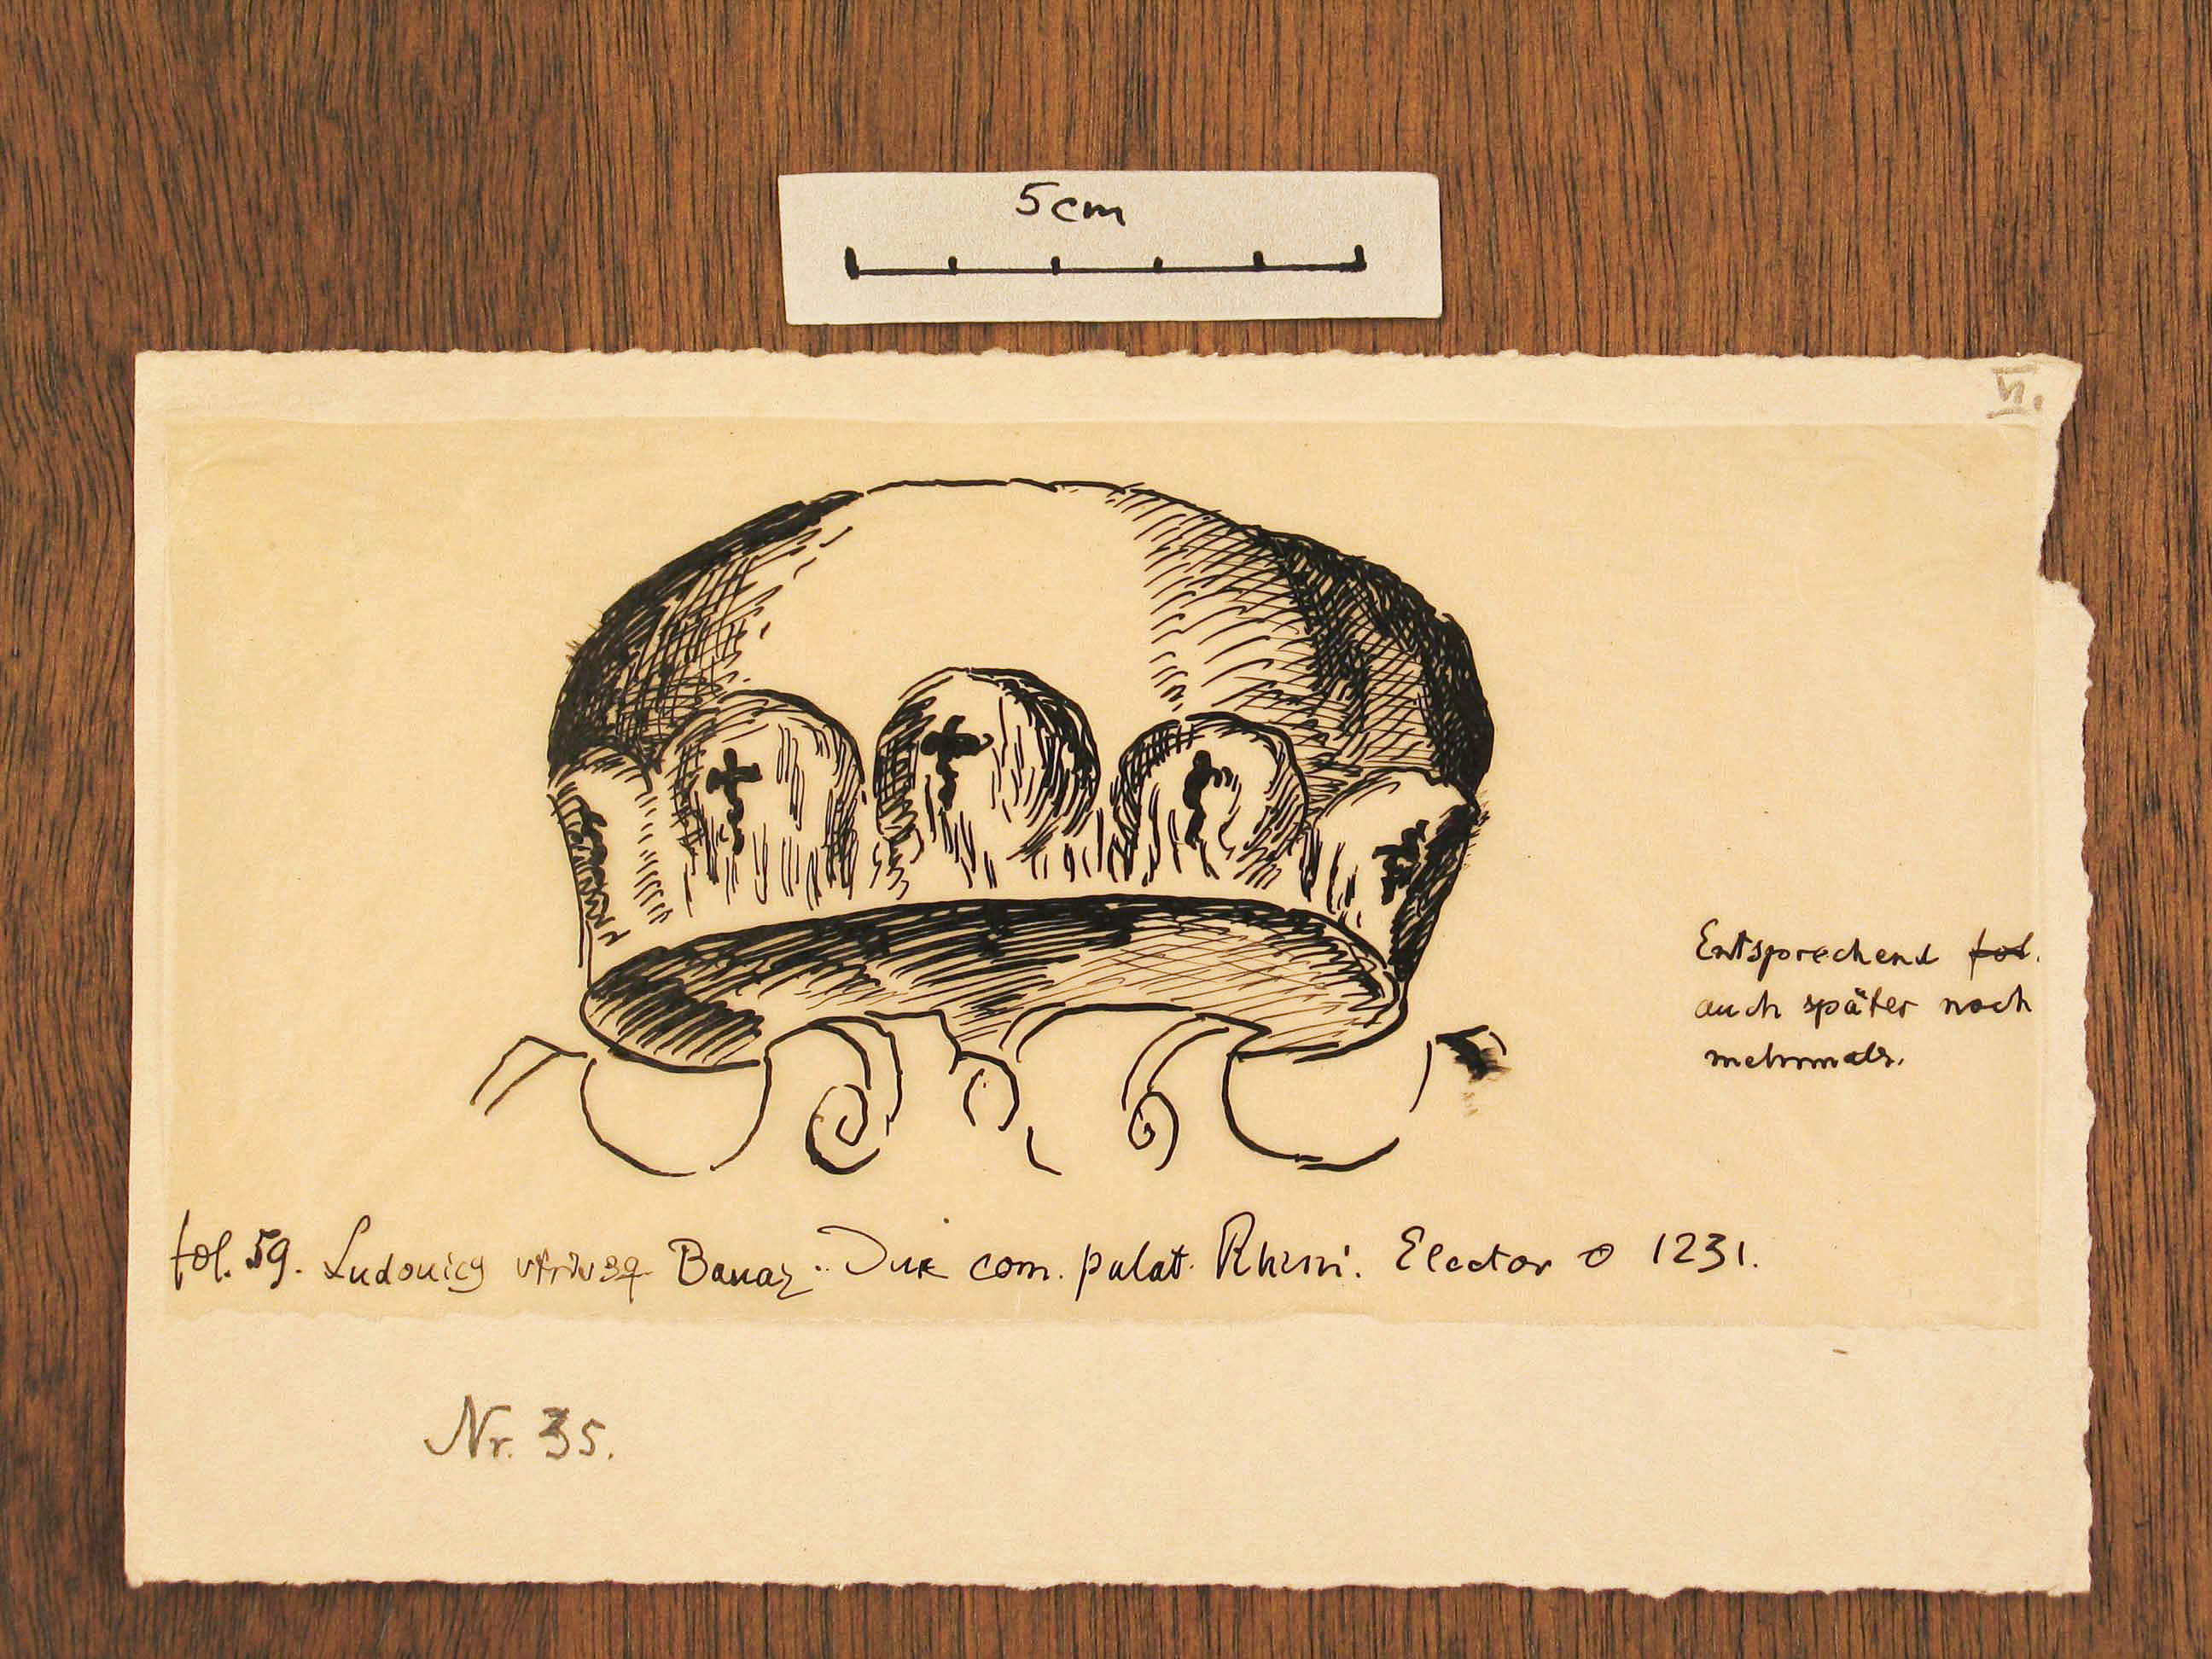 5cm
VI.
Entsprechend fol.
auch später noch
mehrmals.
fol. 59. Ludouicꝰ vtriusqꝫ Bauar. Dux com. palat. Rheni. Elector o 1231.
Nr. 35.